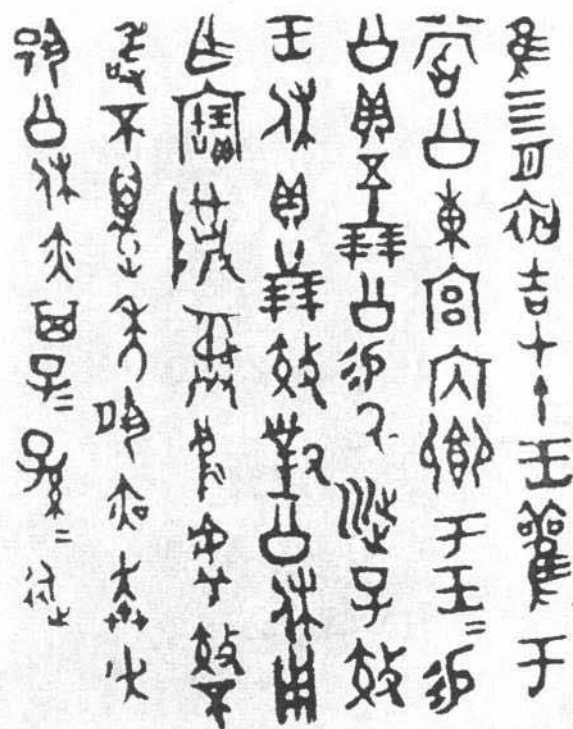 隹四月初吉甲午王雚于
嘗公東宮內鄉于王=易
公貝五十朋公易厥涉子效
王休貝廿朋效對公休用
乍寶尊彝烏虖效不
敢不萬年夙夜奔走
揚公休亦其子=孫=永